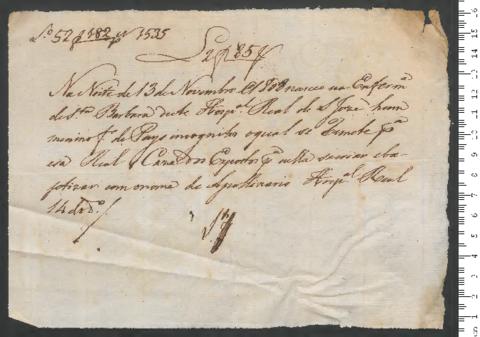 Lº 52 f 182 nº 1535
Lº 2 f 85 f
Na Noite de 13 de Novembro nasceu na Enferm.ª
de Stª Barbara deste Hosp.al Real de S José hum
menino fº de Pays incognitos o qual se Remete pª
essa Real Caza dos Expostos pª nella se criar e ba-
ptizar com o nome de Apollinario Hosp.al Real
14 d.º